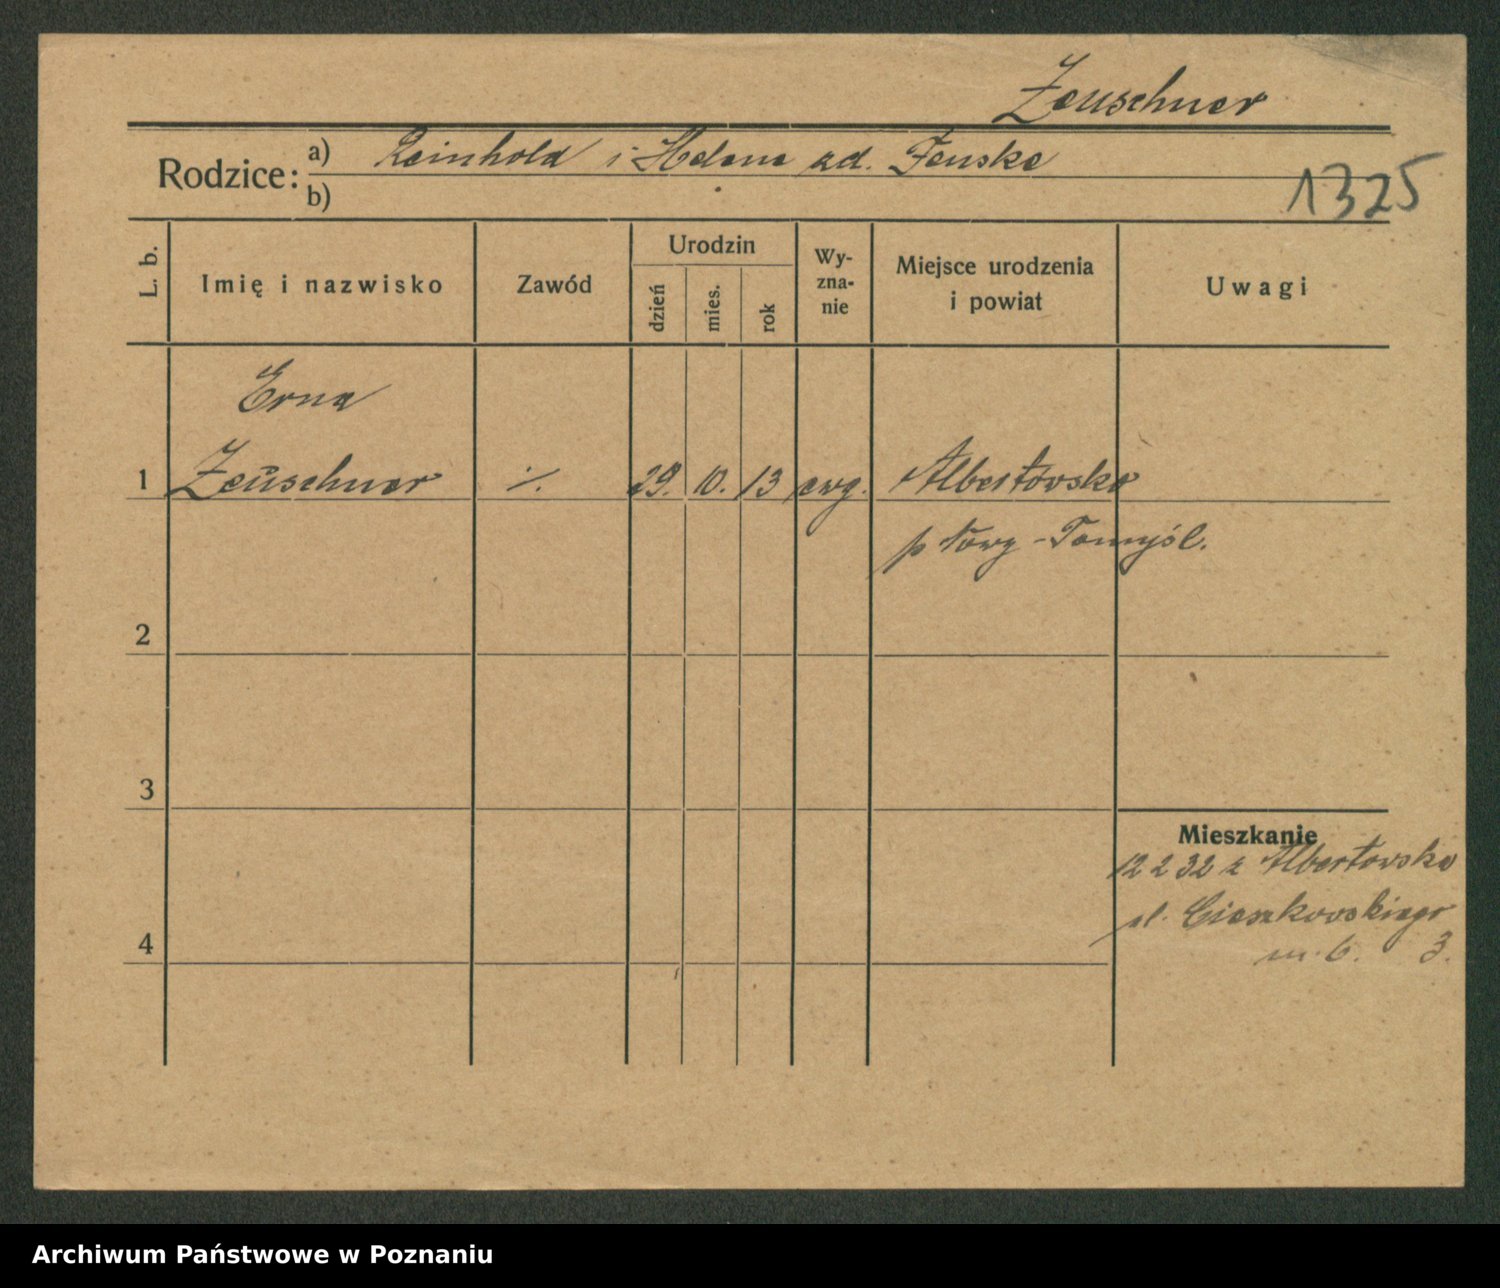 Zeuschner
Rodzice: a) Reinhold i Helene zd. Fenske
b)
1325
L. b.
Imię i nazwisko
Zawód
Urodzin
dzień
mies.
rok
Wy-
zna-
nie
Miejsce urodzenia
i powiat
Uwagi
Erna
1 Zeuschner ·/. 29. 10. 13 ewg. Albertowsko
p Nowy-Tomyśl.
2
3
Mieszkanie
12 2 32 z Albertowsko
ul. Cieszkowskiego
m. 6. 3.
4
Archiwum Państwowe w Poznaniu